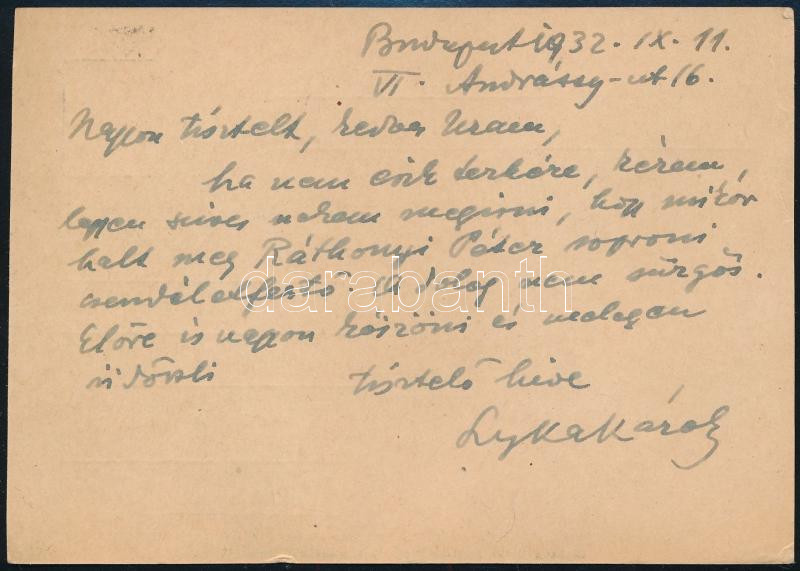 Budapest 1932. IX. 11.
VI. Andrássy-ut 16.
Nagyon tisztelt, kedves Uram,
ha nem esik terhére, kérem,
legyen szives nekem megirni, hogy mikor
halt meg Ráthonyi Péter soproni
csendéletfestő. A dolog nem sürgős.
Előre is nagyon köszöni és melegen
üdvözli
tisztelő hive
Lyka Károly
darabanth